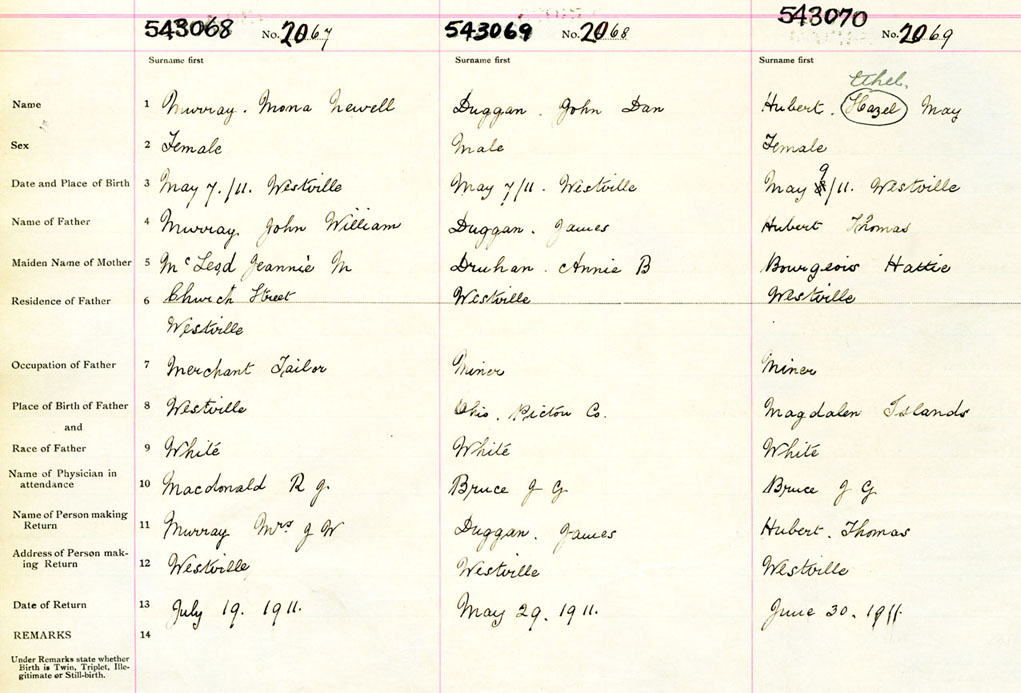 543068 No. 2067 543069 No. 2068 543070 No. 2069
Surname first Surname first Surname first
Ethel.
Name 1 Murray. Mona Newell Duggan. John Dan Hubert. Hazel May
Sex 2 Female Male Female
9
Date and Place of Birth 3 May 7./11. Westville May 7/11. Westville May 8/11. Westville
Name of Father 4 Murray. John William Duggan. James Hubert Thomas
Maiden Name of Mother 5 McLeod Jeannie M Druhan. Annie B Bourgeois Hattie
Residence of Father 6 Church Street Westville Westville
Westville
Occupation of Father 7 Merchant Tailor Miner Miner
Place of Birth of Father 8 Westville Ohio. Pictou Co. Magdalen Islands
and
Race of Father 9 White White White
Name of Physician in
attendance 10 Macdonald R J. Bruce J G Bruce J G
Name of Person making
Return 11 Murray Mrs J W Duggan. James Hubert. Thomas
Address of Person mak-
ing Return 12 Westville Westville Westville
Date of Return 13 July 19. 1911. May 29. 1911. June 30. 1911.
REMARKS 14
Under Remarks state whether
Birth is Twin, Triplet, Ille-
gitimate or Still-birth.